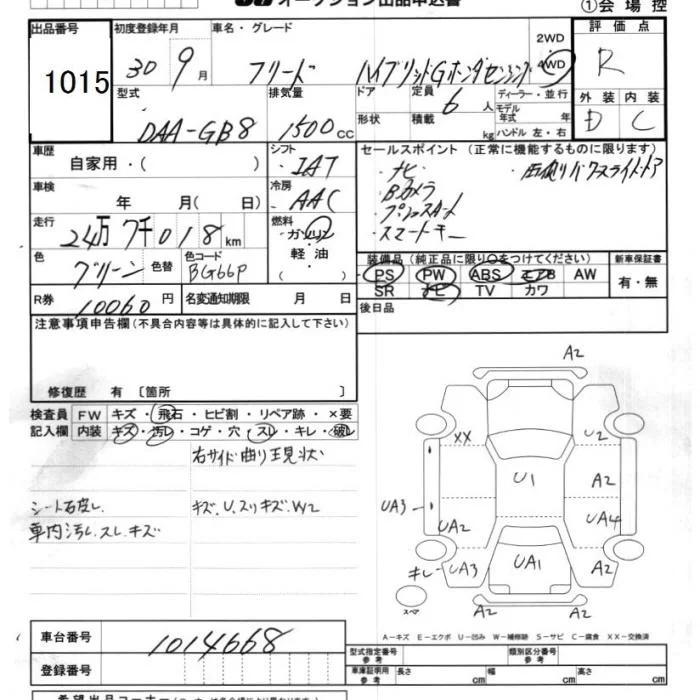 オークション出品申込書
①会場控
出品番号
1015
初度登録年月
30 9月
車名・グレード
フリード ハイブリッドGホンダセンシング
2WD
4WD
評価点
R
型式
DAA-GB8
排気量
1500cc
ドア
形状
定員
6人
積載
kg
ディーラー・並行
モデル年式 年
ハンドル 左・右
外装 内装
D C
車歴
自家用・( )
シフト
IAT
セールスポイント (正常に機能するものに限ります)
・ナビ
・Bカメラ
・プッシュスタート
・スマートキー
車検
年 月( 日)
冷房
AAC
走行
24万7千018km
燃料
ガソリン
軽油
( )
色
グリーン
色替
色コード
BG66P
装備品(純正品に限り○をつけてください)
新車保証書
PS PW ABS エアB AW
有・無
SR ナビ TV カワ
R券
10060円
名変通知期限 月 日
後日品
注意事項申告欄(不具合内容等は具体的に記入して下さい)
修復歴 有〔箇所 〕
検査員 FW キズ・飛石・ヒビ割・リペア跡・×要
記入欄 内装 キズ・汚レ・コゲ・穴・スレ・キレ・破レ
右サイド曲り現状
シート石皮レ
キズ、U、スリキズ、W2
車内汚レ、スレ、キズ
A2
XX
U2
U1
A2
UA3
UA2
UA4
キレ
UA3
UA1
A2
スペア
A2
A2
A−キズ E−エクボ U−凹み W−補修跡 S−サビ C−腐食 XX−交換済
車台番号
1014668
登録番号
型式指定番号
参考
類別区分番号
参考
車庫証明用
参考
長さ cm
幅 cm
高さ cm